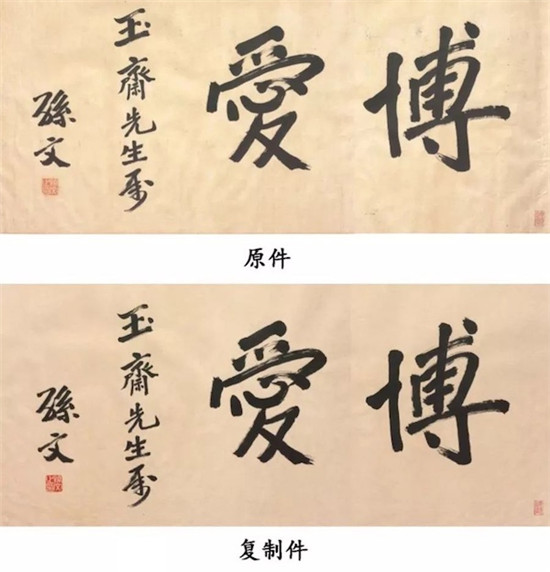 博愛
玉齋先生屬
孫文
原件
博愛
玉齋先生屬
孫文
复制件